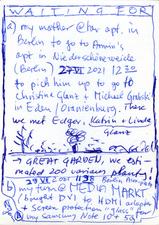 WAITING FOR
a) my mother @ her apt. in
Berlin to go to Armin's
apt in Niederschöneweide
(Berlin) 27 VI 2021 12 30
to pick him up to go to
Christian Glanz + Michael
in Eden / Oranienburg. There
we met Edgar, Katrin + Linda
Glanz
→ GREAT GARDEN, we esti-
mated 200 various plants!
b) my turn @ MEDIA MARKT
/ bought DVI to HDMI adapter
& screen protection glass for
my Samsung Note 10+ 5G